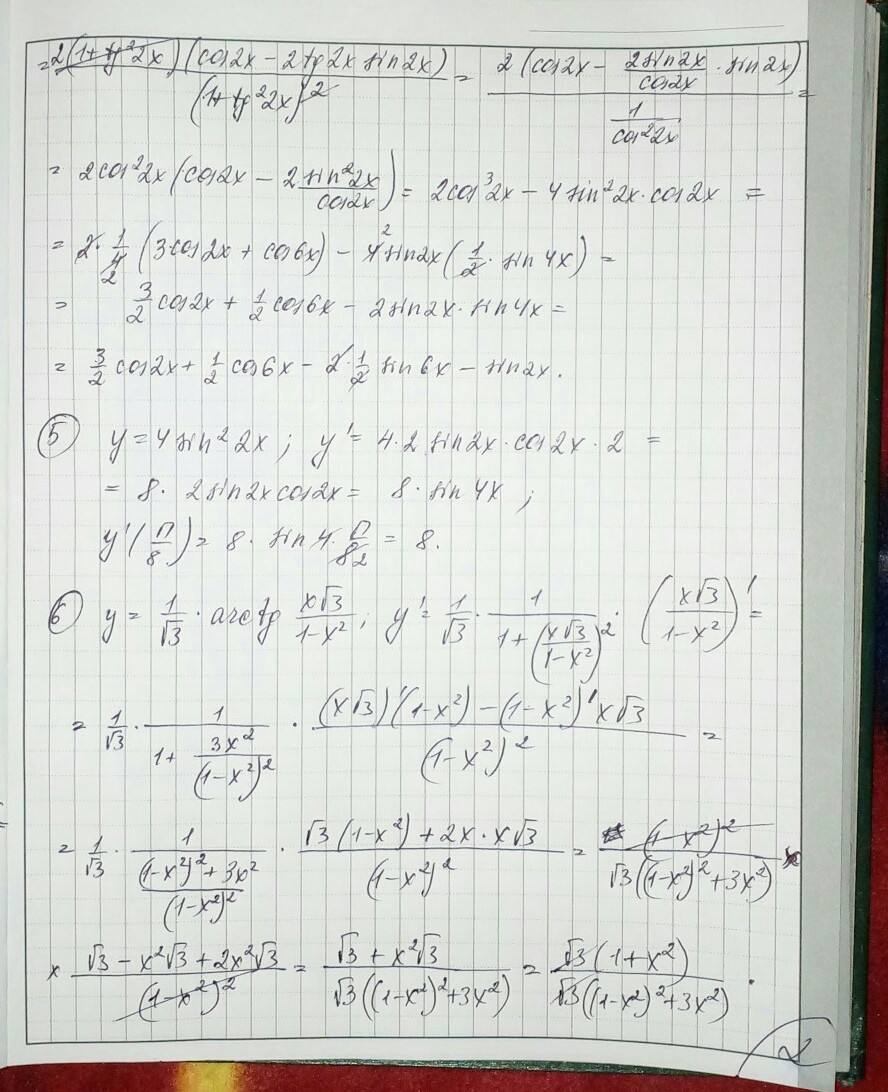 = 2(1+tg²2x)(cos2x − 2tg2x sin2x) / (1+tg²2x)² = 2(cos2x − 2sin2x/cos2x · sin2x) / (1/cos²2x) =
= 2cos²2x(cos2x − 2 sin²2x/cos2x) = 2cos³2x − 4sin²2x·cos2x =
= 2·1/4 (3cos2x + cos6x) − 4 sin2x(1/2 · sin4x) =
= 3/2 cos2x + 1/2 cos6x − 2sin2x·sin4x =
= 3/2 cos2x + 1/2 cos6x − 2·1/2 sin6x − sin2x.
5 y = 4sin²2x; y' = 4·2 sin2x·cos2x·2 =
= 8· 2sin2xcos2x = 8·sin4x;
y'(π/8) = 8· sin4·π/8 = 8.
6 y = 1/√3 · arctg x√3/(1−x²); y' = 1/√3 · 1/(1+(x√3/(1−x²))²) · (x√3/(1−x²))' =
= 1/√3 · 1/(1+ 3x²/(1−x²)²) · ((x√3)'(1−x²) − (1−x²)'x√3)/(1−x²)² =
= 1/√3 · 1/(((1−x²)²+3x²)/(1−x²)²) · (√3(1−x²)+2x·x√3)/(1−x²)² = (1−x²)²/(√3((1−x²)²+3x²)) ×
× (√3 − x²√3 + 2x²√3)/(1−x²)² = (√3 + x²√3)/(√3((1−x²)²+3x²)) = √3(1+x²)/(√3((1−x²)²+3x²)).
2